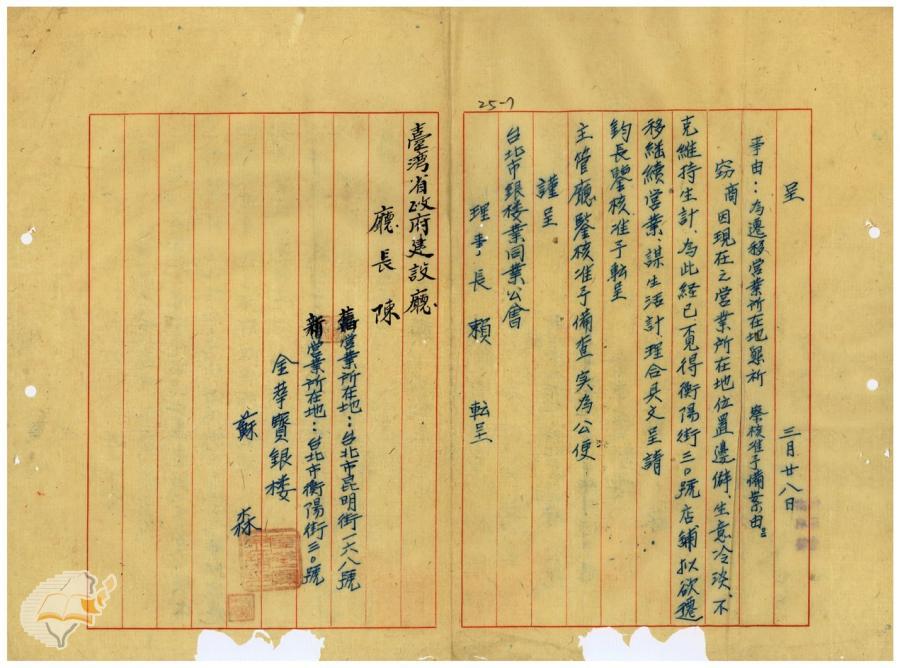 25-7
呈
三月廿八日
事由：為遷移營業所在地懇祈　察核准予備案由。
竊商因現在之營業所在地位置邊僻、生意冷淡、不
克維持生計、為此經已覓得衡陽街三〇號店鋪拟欲遷
移繼續營業、謀生活計理合具文呈請
鈞長鑒核准予転呈
主管廳鑒核准予備查実為公便
謹呈
台北市銀楼業同業公會
理事長　賴　転呈
臺湾省政府建設廳
廳長　陳
舊營業所在地：台北市昆明街一六八號
新營業所在地：台北市衡陽街三〇號
金華寶銀楼
蘇　森